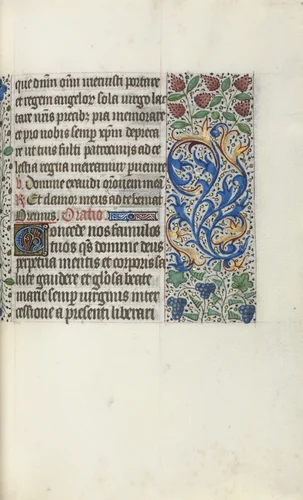 que dnm om̄m meruisti portare
et regem angeloꝝ sola virgo lac
tare
pia memorare
et pro nobis semp xpm depreca
re ut tuis fulti patrociniis ad ce
lestia regna
v. Domine exaudi orōnem meā
R. Et clamor meus ad te veniat
Oremus. Oratio
Concede nos famulos
tuos qs domine deus
perpetua mentis et corporis sa
lute gaudere et gl̄osa beate
marie semper virginis inter
cessione a presenti liberari